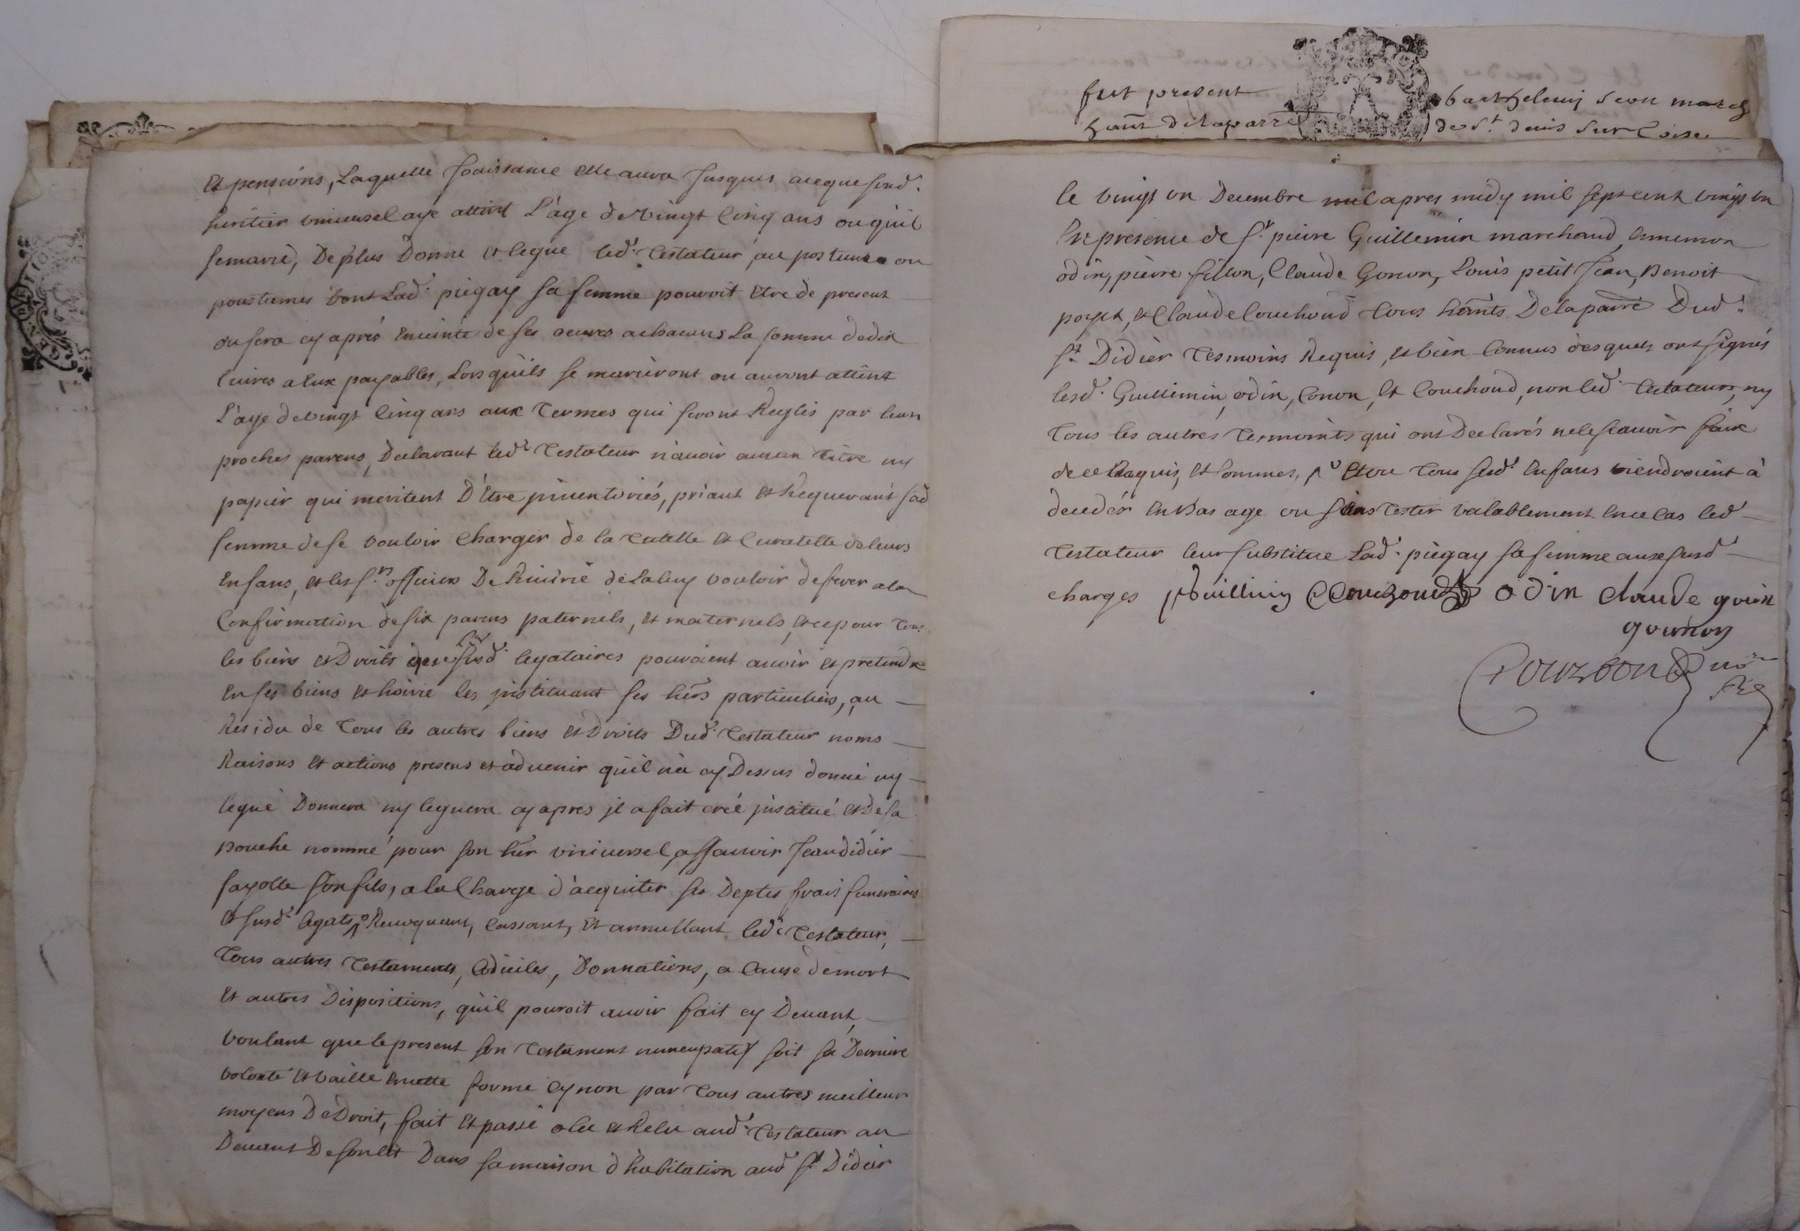 Et pensions, Laquelle Joüissance elle aura Jusques aceque sond.
heritier universel aye atteint L'age devingt Cinq ans ou qu'il
semarie, Deplus Donne et legue led.t Testateur, au postume ou
poustumes dont Lad.e piegay sa femme pouroit Etre de present
ou sera cy aprés Enceinte de ses oeuvres achacuns La somme dedix
livres a Eux payables, Lors qu'ils se marieront ou auront atteint
L'age devingt Cinq ans aux Termes qui seront Reglés par leur
proches parens, Declarant led.t Testateur n'avoir aucun Titre ny
papier qui meritent D'Etre jnventoriés, priant et Requerant sad
femme dese vouloir Charger de la Tutelle et Curatelle deleurs
Enfans, et les s.rs officiers De vouloir deferer ala
Confirmation desix parens paternels, et maternels, et ce pour Tous
les biens et Droits que sesd. legataires pouroient avoir et pretendre
En ses biens et hoirie les jnstituant ses hers particuliers, au
Residu de Tous les autres biens et Droits Dud.t Testateur noms
Raisons et actions presens et advenir qu'il n'a cy Dessus donné ny
legué Donnera ny leguera cy apres jl a fait creé jnstitué et De sa
bouche nommé pour son her universel, assavoir Jean didier
fayolle son fils, a la Charge d'acquiter ses Deptes frais funeraires
Et susd.ts legats, Revoquant, Cassant, Et annullant led.t Testateur,
Tous autres Testaments, Codiciles, Donnations, a Cause demort
Et autres Dispositions, qu'il pouroit avoir fait cy Devant,
voulant que le present son Testament nuncupatif soit sa Derniere
volonté Et vaille En cette forme cy non par Tous autres meilleur
moyens De Droit, fait Et passé olu et Relu aud.t Testateur au
Devant Deson lit Dans samaison d'habitation aud.t S.t Didier
fut present Barthelemy Seon march
hant dela parre de S.t denis sur Coise
le vingt un Decembre mil apres midy mil sept cent vingt un
En presence de s.r pierre Guillemin marchand,
odin, pierre fillon, Claude Gonon, Louis petit Jean, Benoit
payet, et Claude Couchoud Tous hants Delaparre Dud.t
S.t Didier Tesmoins Requis, et bien Connus desquels ont signés
lesd. Guillemin, odin, Gonon, Et Couchoud, non led.t Testateur, ny
Tous les autres Tesmoints qui ont Declarés nele scavoir faire
de ce Enquis, et sommes, Et ou Tous susd.ts Enfans viendroient à
deceder En bas age ou sans Tester valablement En ce Cas led.t
Testateur leur substitue Lad.e piegay sa femme aux susd.
charges Guillimin Couzoud odin claude gonon
gournon
Couzoud no.re